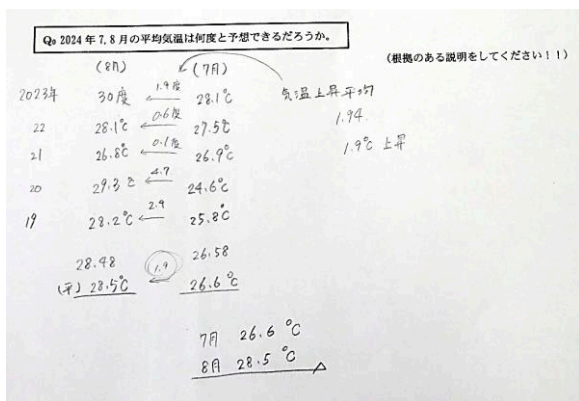 Q。2024年7,8月の平均気温は何度と予想できるだろうか。
(根拠のある説明をしてください！！)
(8月) (7月)
2023年 30度 ← 1.9度 28.1℃
22 28.1℃ ← 0.6度 27.5℃
21 26.8℃ ← 0.1度 26.9℃
20 29.3℃ ← 4.7 24.6℃
19 28.2℃ ← 2.9 25.8℃
28.48 26.58
(平) 28.5℃ ← 1.9 26.6℃
気温上昇平均
1.94
1.9℃ 上昇
7月 26.6℃
8月 28.5℃